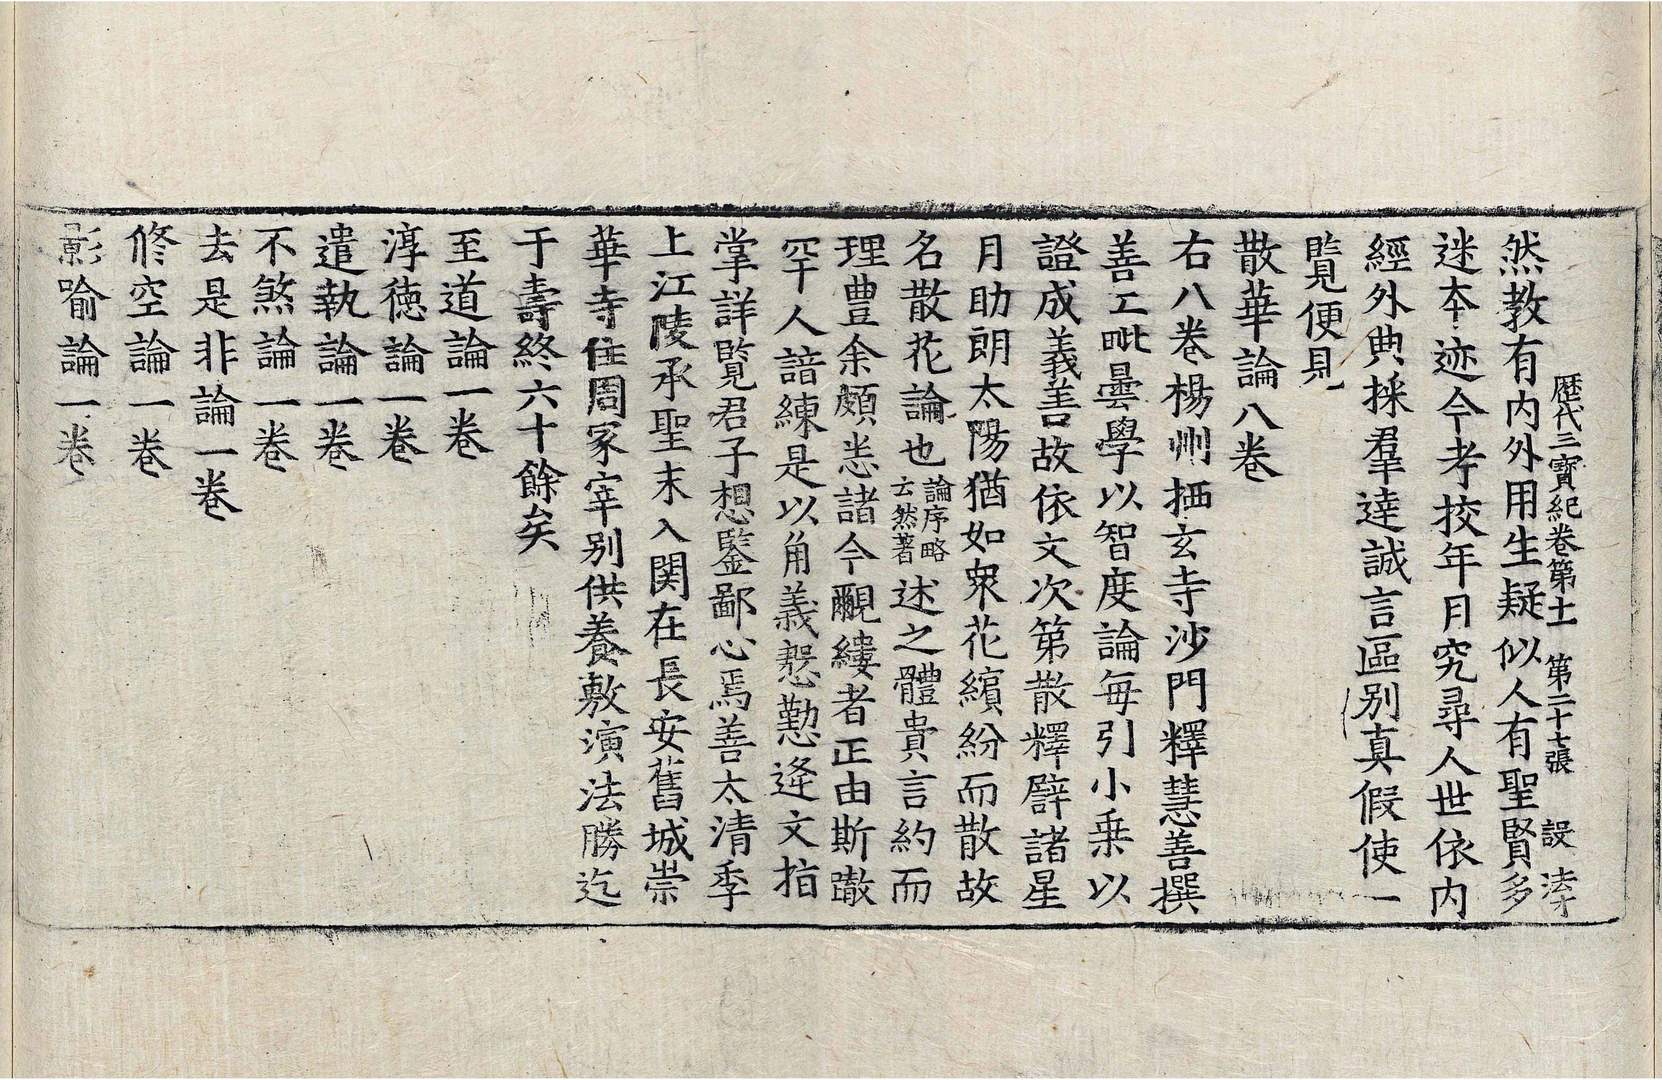 歴代三寶紀卷第十一 第二十七張 設
然教有内外用生疑似人有聖賢多
迷本迹今考挍年月究尋人世依内
經外典採羣達誠言區别真假使一
覽便見
散華論八卷
右八卷楊州栖玄寺沙門釋慧善撰
善工毗曇學以智度論每引小乗以
證成義善故依文次第散釋譬諸星
月助朗太陽猶如衆花繽紛而散故
名散花論也論序略云然著述之體貴言約而
理豊余頗恙諸今覼縷者正由斯轍
罕人諳練是以角義慇懃逄文指
掌詳覽君子想鑒鄙心焉善太清季
上江陵承聖末入関在長安舊城崇
華寺住周冢宰别供養敷演法勝迄
于壽終六十餘矣
至道論一卷
淳徳論一卷
遣執論一卷
不煞論一卷
去是非論一卷
修空論一卷
影喻論一卷